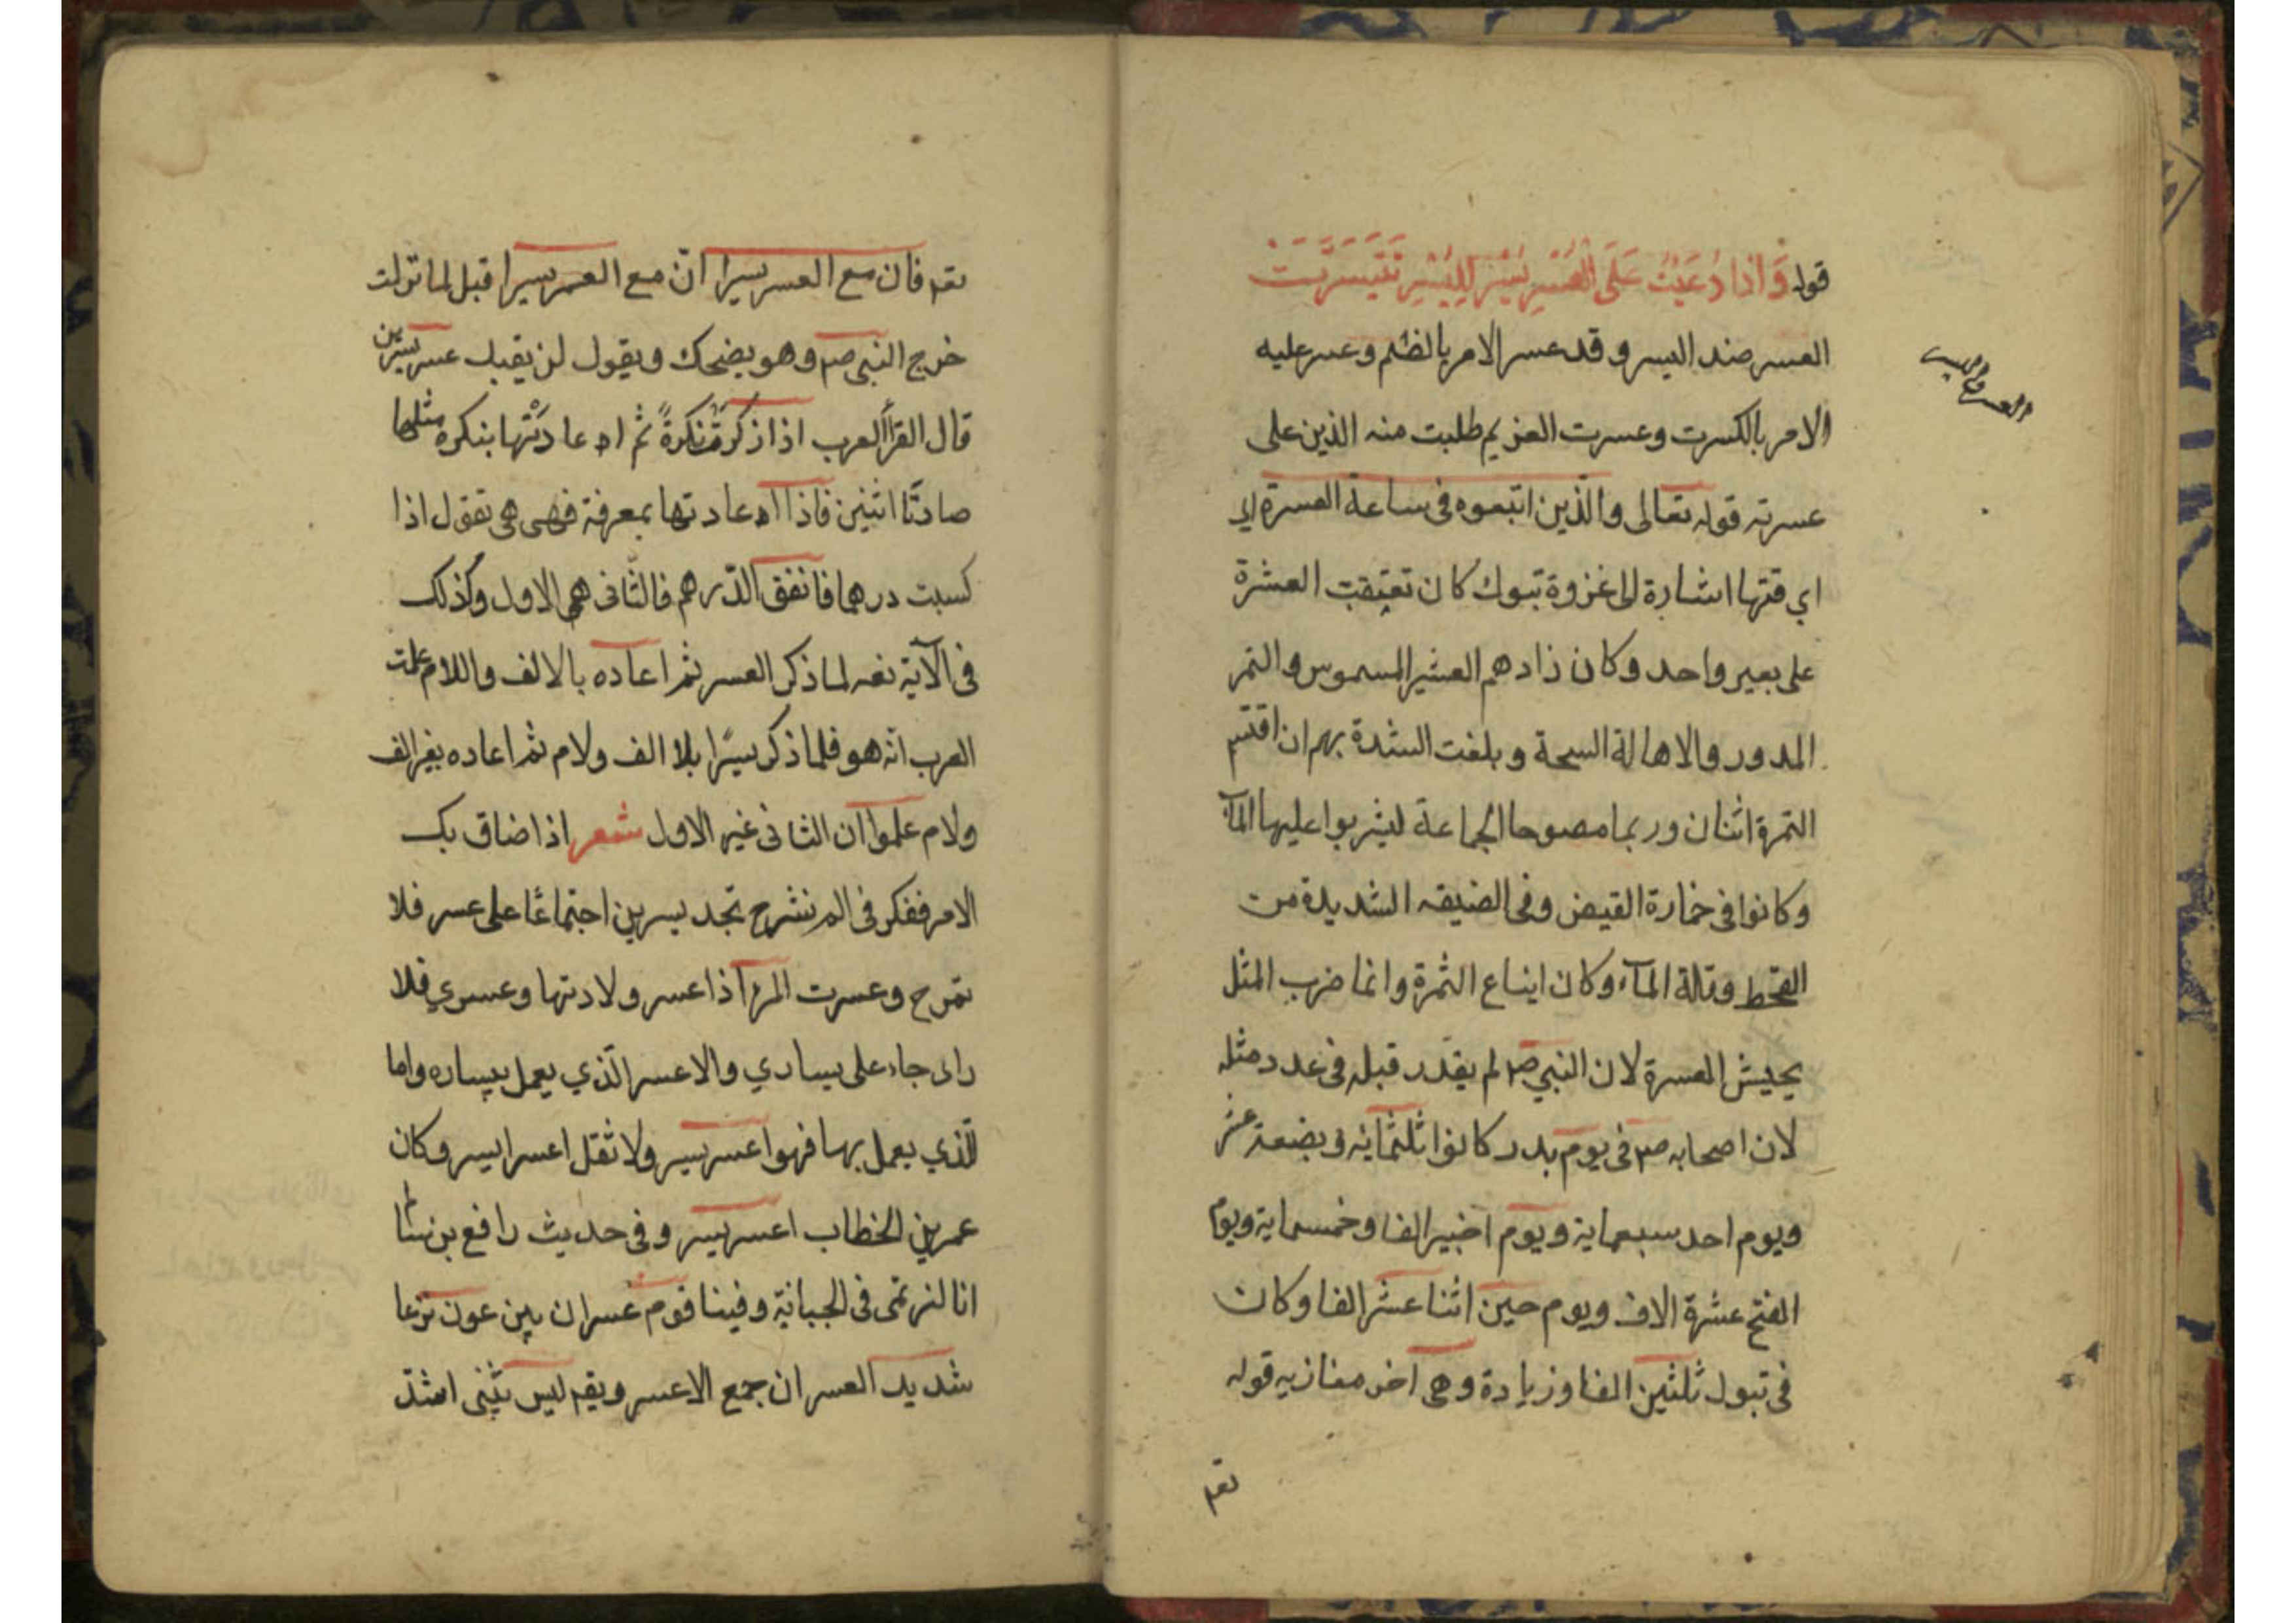 قوله وَاذا دُعيْتَ عَلَى العُسْرِ لِلْيُسْرِ تَيَسَّرَتْ
العسر واليسر
العسر ضد اليسر و قد عسر الامر بالضم وعسر عليه
الامر بالكسرت وعسرت الغريم طلبت منه الذين على
عسرته قوله تعالى والذين اتبعوه فى ساعة العسرة اي
اي وقتها اشارة الى غزوة تبوك كان تعتقب العشرة
على بعير واحد وكان زادهم الشعير المسوس والتمر
المدور والاهالة السحة وبلغت الشدة بهم ان اقتسم
التمرة اثنان وربما مصوحا الجماعة ليشربوا عليها المآ
وكانوا فى خمارة القيض وفى الضيقه الشديدة من
القحط وقلة المآء وكان ايناع الثمرة وانما ضرب المثل
بجيش العسرة لان النبي صم لم يقدر قبله فى عدد مثله
لان اصحابه صم فى يوم بدر كانوا ثلثمائه و بضعة عشر
ويوم احد سبعماية ويوم اخيبر الفا وخمسماية ويوم
الفتح عشرة الاف ويوم حنين اثنا عشر الفا وكان
فى تبوك ثلثين الفا وزيادة وهى آخر مغازيه قوله
تعم
تعم فان مع العسر يسيرا ان مع العسر يسيرا قيل لما نزلت
خرج النبي صم وهو يضحك ويقول لن يغلب عسر يسرين
قال الفرآ العرب اذا ذكرت نكرةً ثم اعادَتْها بنكره مثلها
صارتا اثنين فاذا اعادتها بمعرفة فهى هى تقول اذا
كسبت درهما فانفق الدّرهم فالثّانى هى الاول وكذلك
فى الآية نعم لما ذكر العسر ثم اعاده بالالف واللام علمت
العرب انه هو فلما ذكر يسرًا بلا الف ولام ثم اعاده بغير الف
ولام علموا ان الثانى غير الاول شعر اذا ضاق بك
الامر ففكر فى الم نشرح تجد يسرين اجتماعًا على عسر فلا
تمرح وعسرت المرأ اذا عسر ولادتها وعسري فلا
راى جاء على يساري والاعسر الّذي يعمل بيساره واما
الّذي يعمل بها فهو اعسر يسير ولا تقل اعسر ايسر وكان
عمر بن الخطاب اعسر يسير وفى حديث رافع بن سالم
انا لنرتمى فى الجبانة وفينا قوم عسران ينزعون نزعا
شديد العسران جمع الاعسر ويقم ليس شىء اشد